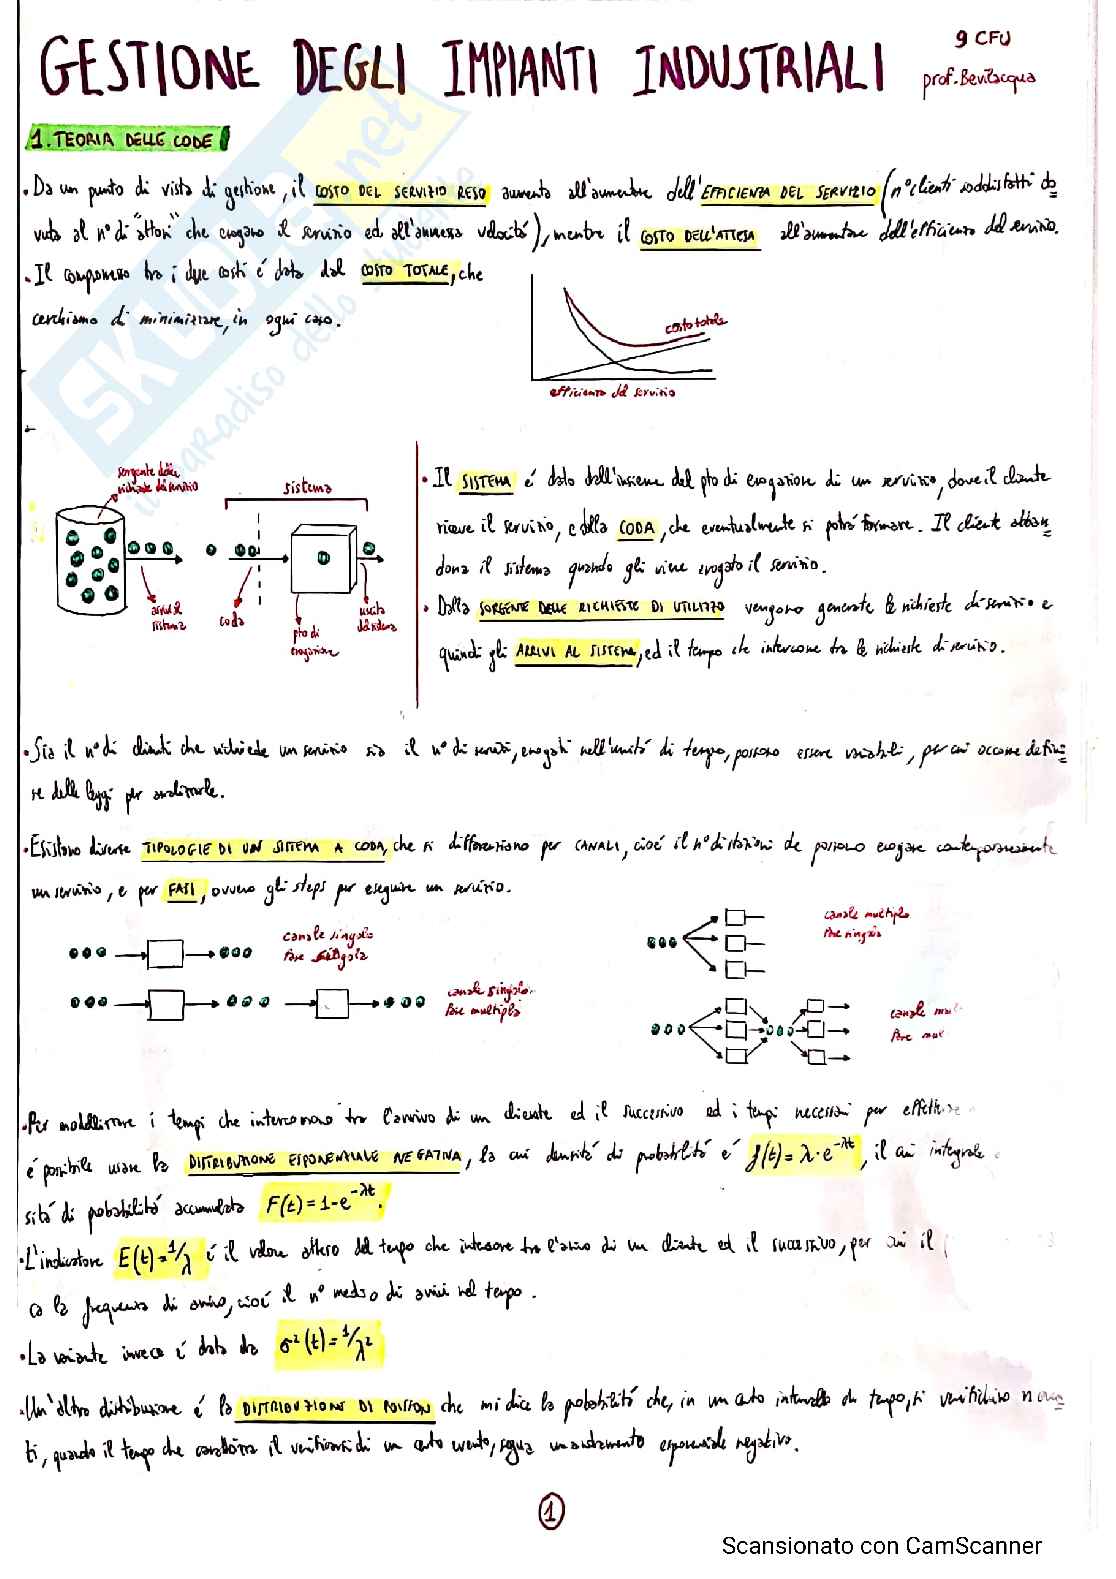 GESTIONE DEGLI IMPIANTI INDUSTRIALI
9 CFU
prof. Bevilacqua
1. TEORIA DELLE CODE
• Da un punto di vista di gestione, il COSTO DEL SERVIZIO RESO aumenta all'aumentare dell'EFFICIENZA DEL SERVIZIO (n° clienti soddisfatti do
vuta al n° di "attori" che erogano il servizio ed all'annessa velocità), mentre il COSTO DELL'ATTESA all'aumentare dell'efficienza del servizio.
• Il compromesso tra i due costi é dato dal COSTO TOTALE, che
cerchiamo di minimizzare, in ogni caso.
costo totale
efficienza del servizio
sorgente delle
richieste di servizio
sistema
arrivi al
sistema
coda
pto di
erogazione
uscita
dal sistema
• Il SISTEMA é dato dall'insieme del pto di erogazione di un servizio, dove il cliente
riceve il servizio, e dalla CODA, che eventualmente si potrá formare. Il cliente abban
dona il sistema quando gli viene erogato il servizio.
• Dalla SORGENTE DELLE RICHIESTE DI UTILIZZO vengono generate le richieste di servizio e
quindi gli ARRIVI AL SISTEMA, ed il tempo che intercorre tra le richieste di servizio.
• Sia il n° di clienti che richiede un servizio sia il n° di servizi, erogati nell'unitá di tempo, possono essere variabili, per cui occorre defini
re delle leggi per analizzarle.
• Esistono diverse TIPOLOGIE DI UN SISTEMA A CODA, che si differenziano per CANALI, cioé il n° di stazioni che possono erogare contemporaneamente
un servizio, e per FASI, ovvero gli steps per eseguire un servizio.
canale singolo
fase singola
canale multiplo
fase singola
canale singolo
fase multipla
canale mul
fase mul
• Per modellizzare i tempi che intercorrono tra l'arrivo di un cliente ed il successivo ed i tempi necessari per effettuare
é possibile usare la DISTRIBUZIONE ESPONENZIALE NEGATIVA, la cui densitá di probabilitá é f(t) = λ·e^-λt, il cui integrale
sitá di probabilitá accumulata F(t) = 1-e^-λt.
• L'indicatore E(t) = 1/λ é il valore atteso del tempo che intercorre tra l'arrivo di un cliente ed il successivo, per cui il
ca la frequenza di arrivo, cioé il n° medio di arrivi nel tempo.
• La varianza invece é data da σ²(t) = 1/λ²
• Un'altra distribuzione é la DISTRIBUZIONE DI POISSON che mi dice la probabilitá che, in un certo intervallo di tempo, si verifichino n even
ti, quando il tempo che caratterizza il verificarsi di un certo evento, segua un andamento esponenziale negativo.
1
Scansionato con CamScanner
SKUOLA.net
il paradiso dello studente